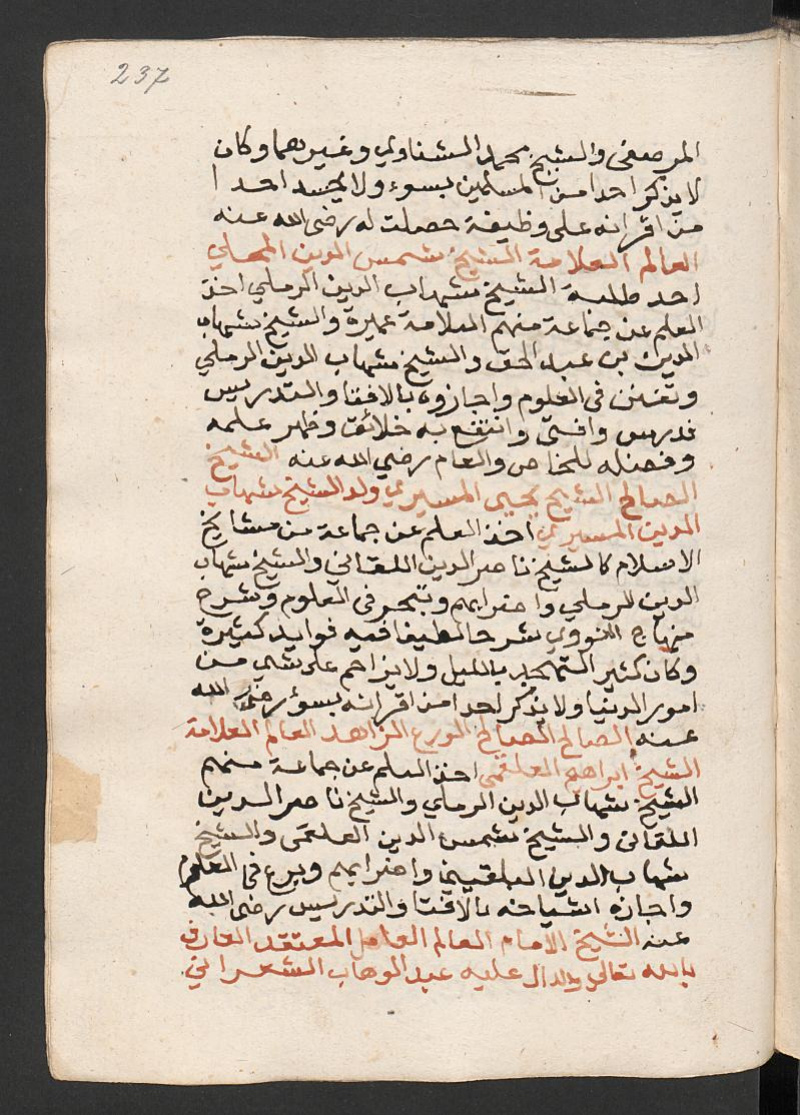 237
المرصفى والشيخ محمد الشناوي وغيرهما وكان
لا يذكر احدا من المسلمين بسوء ولا يحسد احدا
من اقرانه على وظيفة حصلت له رضى الله عنه
العالم العلامة الشيخ شمس الدين المحلي
احد طلبة الشيخ شهاب الدين الرملي اخذ
العلم عن جماعة منهم العلامة عميرة والشيخ شهاب
الدين بن عبد الحق والشيخ شهاب الدين الرملي
وتفنن فى العلوم واجازوه بالافتا والتدريس
فدرس وافتى وانتفع به خلائق وظهر علمه
وفضله للخاص والعام رضي الله عنه الشيخ
الصالح الشيخ يحيى المسيري ولد الشيخ شهاب
الدين المسيري اخذ العلم عن جماعة من مشايخ
الاسلام كالشيخ ناصر الدين اللقاني والشيخ شهاب
الدين الرملي واضرابهم وتبحر فى العلوم وشرح
منهاج النووي شرحا لطيفا فيه فوايد كثيرة
وكان كثير التهجد بالليل ولا يزاحم على شي من
امور الدنيا ولا يذكر احدا من اقرانه بسوء رضى الله
عنه الصالح الصالح الورع الزاهد العالم العلامة
الشيخ ابراهيم العلقمى اخذ العلم عن جماعة منهم
الشيخ شهاب الدين الرملي والشيخ ناصر الدين
اللقانى والشيخ شمس الدين العلقمى والشيخ
شهاب الدين البلقيني واضرابهم وبرع فى العلوم
واجازه اشياخه بالافتا والتدريس رضى الله
عنه الشيخ الامام العالم العامل المعتقد العارف
بالله تعالى والدال عليه عبد الوهاب الشعراني